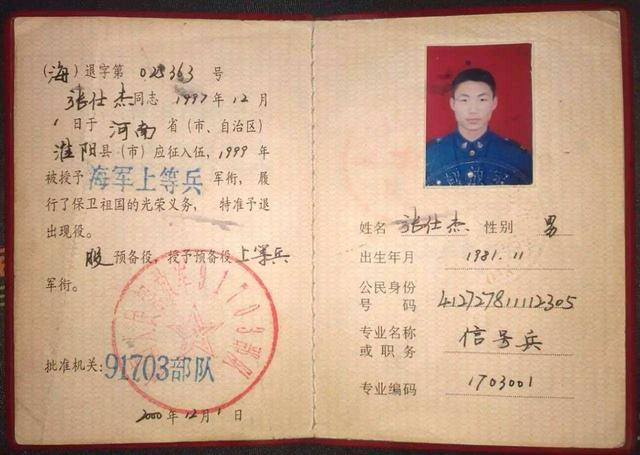 (海)退字第 025363 号
张仕杰同志 1997年12月
1日于 河南 省(市、自治区)
淮阳县(市)应征入伍,1999年
被授予 海军上等兵 军衔,履
行了保卫祖国的光荣义务,特准予退
出现役。
服预备役,授予预备役 上等兵
军衔。
批准机关:91703部队
2000年12月1日
91703部队
姓名 张仕杰 性别 男
出生年月 1981.11
公民身份
号码 412727811112305
专业名称
或职务 信号兵
专业编码 1703001